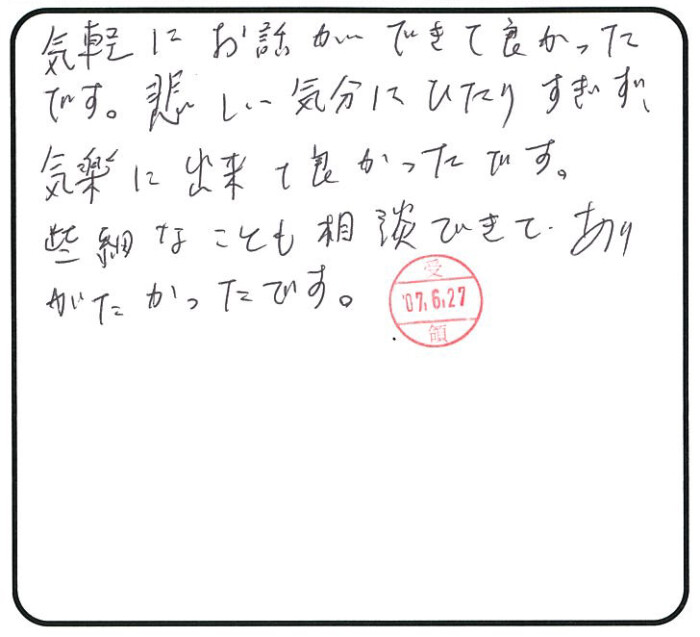 気軽にお話ができて良かった
です。悲しい気分にひたりすぎず、
気楽に出来て良かったです。
些細なことも相談できて、あり
がたかったです。
受
'07.6.27
領